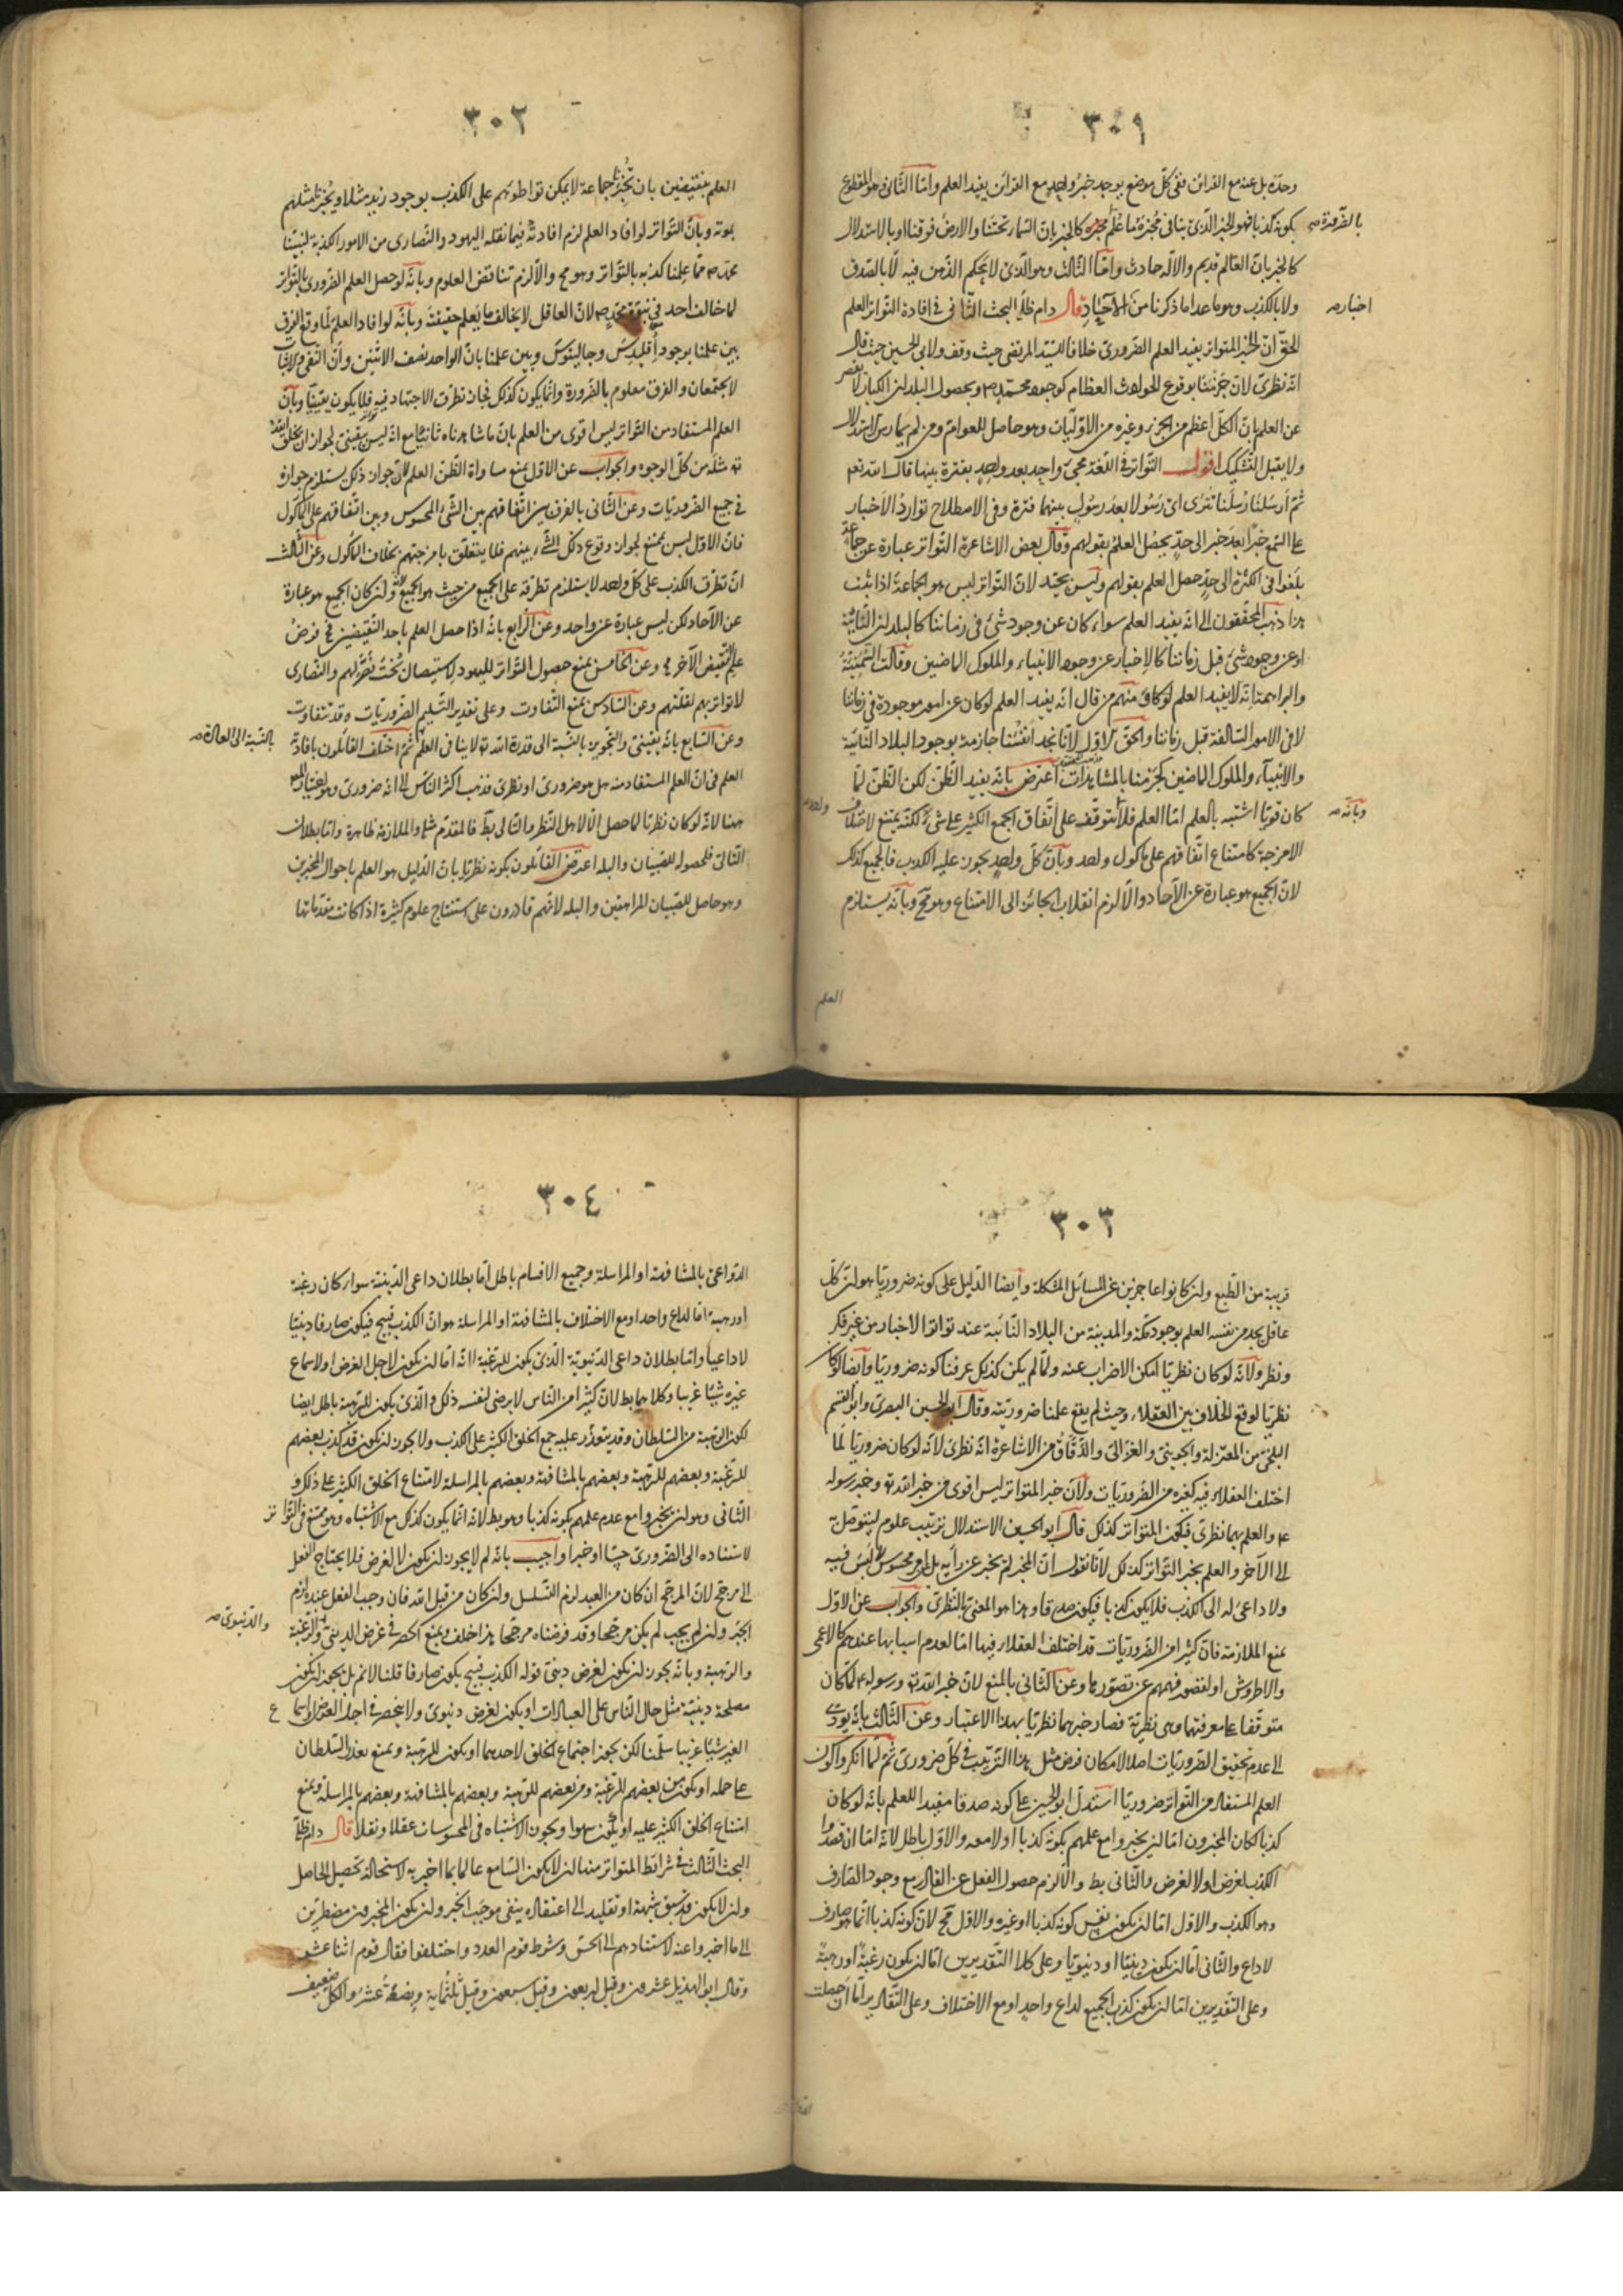 ٣٠١
وحده بل عنه مع القرائن ففى كلّ موضع يوجد خبرُ واحدٍ مع القرائن يفيد العلم وامّا الثّانى وهو المقطوع
بكونه كذبا فهو الخبر الّذى ينافى مُخبَرُهُ ما عُلم كالخبر بانّ السّماء تحتنا والارض فوقنا او بالاستدلال
بالضّرورة صح
كالخبر بانّ العالم قديم والاله حادث وامّا الثّالث وهو الّذى لا يحكم الذّهن فيه لا بالصّدق
ولا بالكذب وهو ما عدا ما ذكرنا من الآحاد قال دام ظلّه البحث الثّانى فى افادة التّواتر العلم
اخبار صح
الحق انّ الخبر المتواتر يفيد العلم الضّرورىّ خلافا للسّيّد المرتضى حيث وقف ولابى الحسين حيث قال
انّه نظرىّ لانّ جَزمَنا بوقوع الحوادث العظام كوجود محمّد ص وبحصول البلدان الكبار لا يقصر
عن العلم بانّ الكلّ اعظم من الجزء وغيره من الاوّليّات وهو حاصل للعوام ومن لم يمارس الاستدلال
ولا يقبل التّشكيك اقول التّواتر فى اللّغة مجىء واحِدٍ بعد واحِدٍ بفترة بينهما قال الله تعم
ثمّ اَرسَلنا رُسُلَنا تَترَى اى رَسُولا بعدَ رسُولٍ بينهما فترة وفى الاصطلاح توارد الاخبار
على السّمع خبرًا بعدَ خبر الى حدٍّ يحصل العلمُ بقولهم وقال بعض الاشاعرة التّواتر عبارة عن جماعة
بلغوا فى الكثرة الى حدٍّ حصل العلم بقولهم وليس بجيّد لانّ التّواتر ليس هو الجماعة اذا ثبت
هذا ذهب المحقّقون الى انّه يفيد العلم سواء كان عن وجود شىء فى زماننا كالبلدان النّائية
او عن وجود شىء قبل زماننا كالاخبار عن وجود الانبياء والملوك الماضين وقالت السّمنيّة
والبراهمة انّه لا يفيد العلم ومنهم من قال انّه يفيد العلم لو كان عن امور موجودة فى زماننا
لا فى الامور السّالفة قبل زماننا والحقّ الاوّل لانّا نجد انفُسَنا جازمة بوجود البلاد النّائية
والانبياء والملوك الماضين كجَزمنا بالمشاهدات اعترض بانّه يفيد الظّنّ لكن الظّنّ لمّا
كان قويّا اشتبه بالعلم امّا العلم فلا يتوقّف على اتّفاق الجمع الكثير على شىء لكنّه يمتنع لاختلاف
وبانّه صح
الامزجة كامتناع اتّفاقهم على ماكول واحد وبانّ كلّ واحدٍ يجوز عليه الكذب فالجميع كذلك
لانّ الجميع هو عبارة عن الآحاد والّا لزم انقلاب الجائز الى الامتناع وهو مح وبانّه يستلزم
العلم
٣٠٢
العلم بنقيضين بان تُخبرنا جماعة لا يمكن تواطؤهم على الكذب بوجود زيد مثلا ويُخبرنا مثلهم
بموته وبانّ التّواتر لو افاد العلم لزم افادته فيما نقله اليهود والنّصارى من الامور الكذبة لنبيّنا
محمّد ص ممّا علمنا كذبه بالتّواتر وهو مح والّا لزم تناقض العلوم وبانّه لو حصل العلم الضّرورى بالتّواتر
لما خالف احد فى نبوّة محمّد ص لانّ العاقل لا يخالف ما يَعلم حقيقته وبانّه لو افاد العلمَ لما وقع الفرق
بين علمنا بوجود اُقليدس وجالينوس وبين علمنا بانّ الواحد نصف الاثنين وانّ النّفى والاثبات
لا يجتمعان والفرق معلوم بالضّرورة وانّما يكون كذلك لجَان تطرّق الاجتهاد فيه فلا يكون يقينيّا وبانّ
العلم المستفاد من التّواتر ليس اقوى من العلم بانّ ما شاهدناه ثانيا مع انّه ليس بيقينىّ لجواز ان يخلق الله
ته مثله من كلّ الوجوه والجواب عن الاوّل بمنع مساواة الظّنّ العلم لانّ جواز ذلك يستلزم جوازه
فى جميع الضّروريّات وعن الثّانى بالفرق بين اتّفاقهم بين الشّىء المحسوس وبين اتّفاقهم على الماكول
فانّ الاوّل ليس بممتنع لجواز وقوع ذلك الشّىء بينهم فلا يتعلّق بامزجتهم بخلاف الماكول وعن الثّالث
انّ تطرّق الكذب على كلّ واحد لا يستلزم تطرّقه على الجميع من حيث هو الجميع لانّه وان كان الجميع هو عبارة
عن الآحاد لكن ليس عبارة عن واحد وعن الرّابع بانّه اذا حصل العلم باحد النّقيضين فى فرضُ
علم النّقيض الآخر مح وعن الخامس بمنع حصول التّواتر لليهود لاستيصال بُختُ نَصَّر لهم والنّصارى
لا تواتر بهم لقلّتهم وعن السّادس بمنع التّفاوت وعلى تقدير التّسليم الضّروريّات ه قد تتفاوت
وعن السّابع بانّه يقينىّ والتّجويز بالنّسبة الى قدرة الله ته لا ينافى العلم ثمّ اختلف القائلون بافادة
بالنّسبة الى العادة صح
العلم فى انّ العلم المستفاد منه هل هو ضرورىّ او نظرىّ فذهب اكثر النّاس الى انّه ضرورى وهو اختيار المص
ههنا لانّه لو كان نظريّا لما حصل الّا لاهل النّظر والتّالى بط فالمقدّم مثله والملازمة ظاهرة وامّا بطلان
التّالى فلحصوله للصّبيان والبله اعترض القائلون بكونه نظريّا بانّ الدّليل هو العلم باحوال المخبرين
وهو حاصل للصّبيان المراهقين والبله لانّهم قادرون على استنتاج علوم كثيرة اذا كانت مقدّماتها
٣٠٣
قريبة من الطّبع وان كانوا عاجزين عن المسائل المشكلة وايضا الدّليل على كونه ضروريّا هو انّ كلّ
عاقل يجد من نفسه العلم بوجود مكّة والمدينة من البلاد النّائية عند تواتر الاخبار من غير فكر
ونظر ولانّه لو كان نظريّا امكن الاضراب عنه ولمّا لم يكن كذلك عرفنا كونه ضروريّا وايضا لو كان
نظريّا لوقع الخلاف بين العقلاء وحيث لم يقع علمنا ضروريّته وقال ابو الحسين البصرىّ وابو القسم
البلخىّ من المعتزلة والجوينىّ والغزالىّ والدّقّاق من الاشاعرة انّه نظرىّ لانّه لو كان ضروريّا لمّا
اختلف العقلاء فيه كغيره من الضّروريّات ولانّ خبر المتواتر ليس اقوى من خبر الله ته وخبر رسوله
ع والعلم بهما نظرىّ فيكون المتواتر كذلك قال ابو الحسين الاستدلال ترتيب علوم ليتوصّل به
الى الآخر والعلم بخبر التّواتر كذلك لانّا نقول انّ المخبر لم يخبر عن رأيه بل امر محسوس لا لَبسَ فيه
ولا داعىَ له الى الكذب فلا يكون كذبا فيكون صدقا وهذا هو المعنىّ بالنّظرىّ والجواب عن الاوّل
بمنع الملازمة فانّ كثيرا من الضّروريّات قد اختلف العقلاء فيها امّا لعدم اسبابها عندهم كالاعمى
والاطروش او لقصور فهمهم عن تصوّرها وعن الثّانى بالمنع لانّ خبر الله ته ورسوله ع لمّا كان
متوقّفا على معرفتهما وهى نظريّة فصار خبرهما نظريّا بهذا الاعتبار وعن الثّالث بانّه يؤدّى
الى عدم تحقيق الضّروريّات اصلا لامكان فرض مثل هذا التّرتيب فى كلّ ضرورىّ ثمّ لمّا انكروا كون
العلم المستفاد من التّواتر ضروريّا استدلّ ابو الحسين على كونه صدقا مفيدا للعلم بانّه لو كان
كذبا لكان المخبرون امّا ان يخبروا مع علمهم بكونه كذبا او لا معه والاوّل باطل لانّه امّا ان قصدوا
الكذب لغرض او لا لغرض والثّانى بط والّا لزم حصول الفعل عن القادر مع وجود الصّارف
وهو الكذب والاوّل امّا ان يكون نفس كونه كذبا او غيره والاوّل مح لانّ كونه كذبا انّما هو صارف
لا داع والثّانى امّا ان يكون دينيّا او دنيويّا وعلى كلا التّقديرين امّا ان يكون رغبةً او رهبةً
وعلى التّقديرين امّا ان يكون كذب الجميع لداع واحدٍ او مع الاختلاف وعلى التّقادير امّا ان حصلت
٣٠٤
الدّواعىّ بالمشافهة او المراسلة وجميع الاقسام باطل امّا بطلان داعى الدّينيّة سواء كان رغبة
او رهبة امّا لداع واحد او مع الاختلاف بالمشافهة او المراسلة هو انّ الكذب قبيح فيكون صارفا دينيّا
لا داعيا وامّا بطلان داعى الدّنيويّة الّذى يكون للرّغبة انّه امّا ان يكون لاجل العوض او لاسماع
غيره شيئا غريبا وكلاهما بط لانّ كثيرا من النّاس لا يرضى لنفسه ذلك والّذى يكون للرّهبة باطل ايضا
لكون الرّهبة من السّلطان وقد يتعذّر عليه جمع الخلق الكثير على الكذب ولا يجوز ان يكون قد كذب بعضهم
للرّغبة وبعضهم للرّهبة وبعضهم بالمشافهة وبعضهم بالمراسلة لامتناع الخلق الكثير على ذلك و
الثّانى وهو ان يخبروا مع عدم علمهم بكونه كذبا وهو بط لانّه انّما يكون كذلك مع الاشتباه وهو ممتنع فى التّواتر
لاستناده الى الضّرورىّ حِسًّا او خبرا واجيب بانّه لم لا يجوز ان يكون لا لغرض فلا يحتاج الفعل
الى مرجّح لانّ المرجّح ان كان من العبد لزم التّسلسل وان كان من قبل الله فان وجب الفعل عنده لزم
الجَبرُ وان لم يجب لم يكن مرجّحا وقد فرضناه مرجّحا هذا خلف ويمنع الحصر فى غرض الدّينىّ والرّغبة
والدّنيوىّ صح
والرّهبة وبانّه يجوز ان يكون لغرض دينىّ قوله الكذب قبيح يكون صارفا قلنا لا نم بل يجوز ان يكون
مصلحة دينيّة مثل حال النّاس على العبادات او يكون لغرض دنيوىّ ولا ينحصر فى اجل العوض او اسماع
الغير شيئا غريبا سلّمنا لكن يجوز اجتماع الخلق لاحدهما او يكون للرّهبة ويمنع تعذّر السّلطان
على حمله او يكون من بعضهم للرّغبة ومن بعضهم للرّهبة وبعضهم بالمشافهة وبعضهم بالمراسلة ويمنع
امتناع الخلق الكثير عليه او يكون سهوا ويجوز الاشتباه فى المحسوسات عقلا ونقلا قال دام ظلّه
البحث الثّالث فى شرائط المتواتر منها ان لا يكون السّامع عالما بما اخبر به لاستحالة تحصيل الحاصل
وان لا يكون قد سبق شبهة او تقليد الى اعتقاد ينفى موجَب الخبر وان يكون المخبرون مضطرّين
الى ما اخبروا عنه لاستنادهم الى الحسّ وشرط قوم العدد واختلفوا فقال قوم اثنا عشر
وقال ابو الهذيل عشرون وقيل اربعون وقيل سبعون وقيل ثلثماية وبضعةُ عشَرَ والكلّ ضعيف